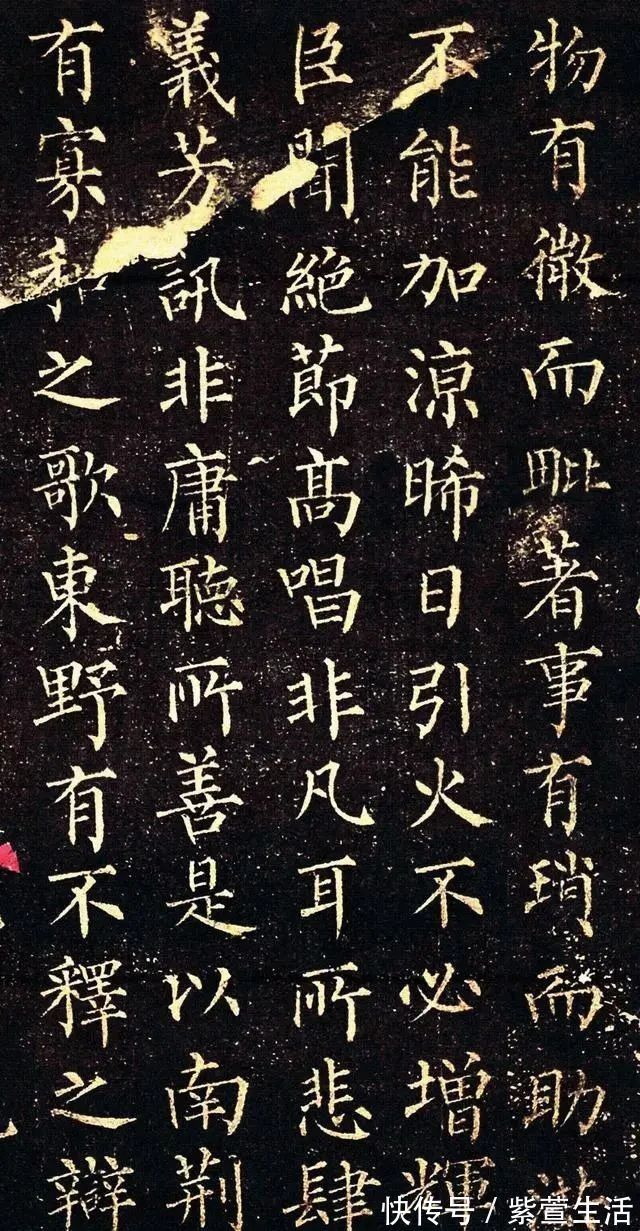 物有微而毗著事有瑣而助洪
不能加涼晞日引火不必增輝
臣聞絶節髙唱非凡耳所悲肆
義芳訊非庸聽所善是以南荊
有寡和之歌東野有不釋之辯
快传号/紫萱生活